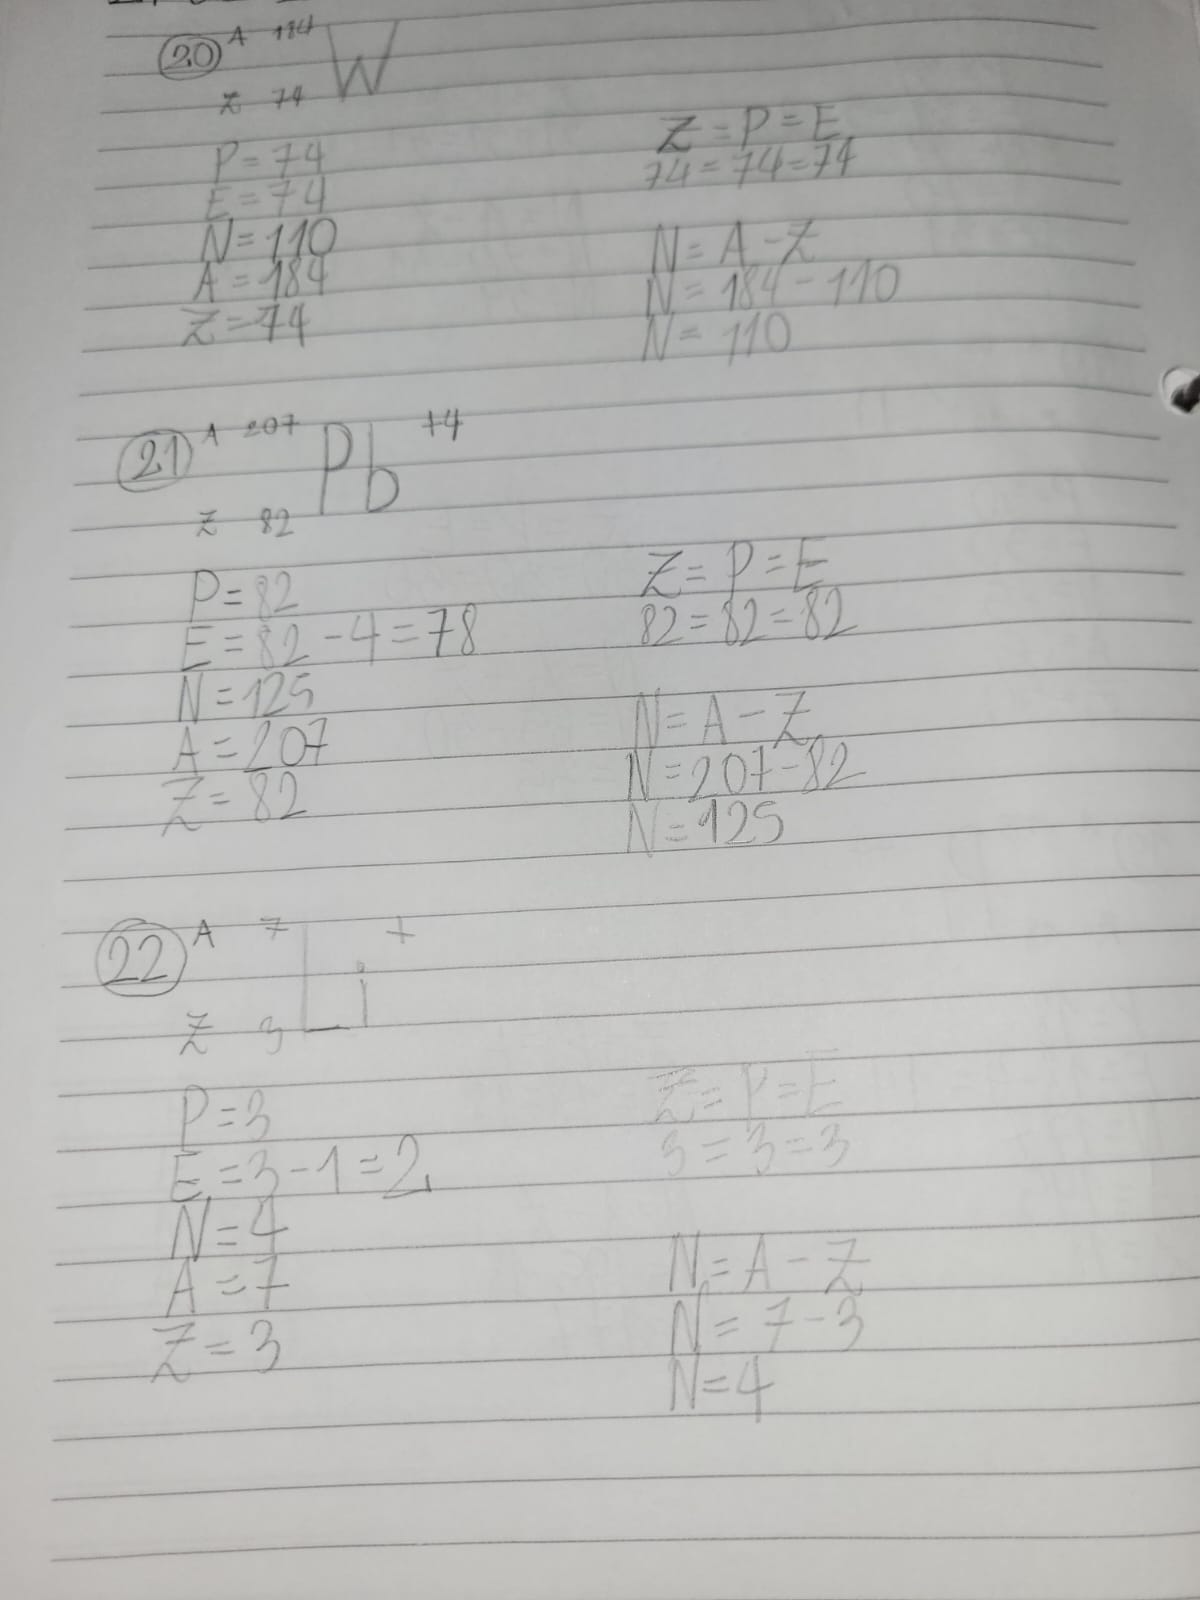 20 A 184 W
Z 74
P = 74
E = 74
N = 110
A = 184
Z = 74
Z = P = E
74 = 74 = 74
N = A - Z
N = 184 - 110
N = 110
21 A 207 Pb +4
Z 82
P = 82
E = 82 - 4 = 78
N = 125
A = 207
Z = 82
Z = P = E
82 = 82 = 82
N = A - Z
N = 207 - 82
N = 125
22 A 7 Li +
Z 3
P = 3
E = 3 - 1 = 2
N = 4
A = 7
Z = 3
Z = P = E
3 = 3 = 3
N = A - Z
N = 7 - 3
N = 4